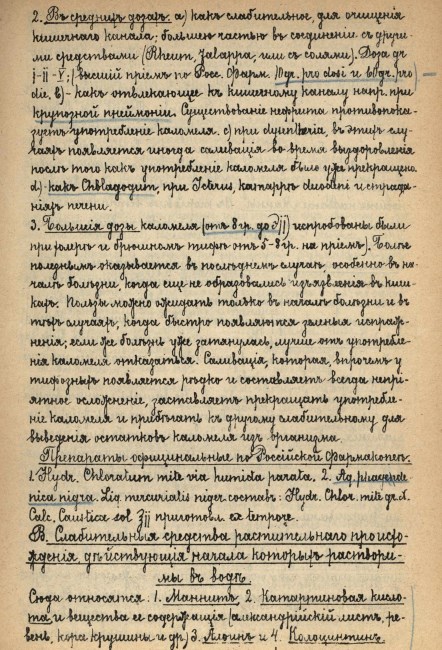 2. Въ среднихъ дозахъ: a) какъ слабительное для очищенія
кишечнаго канала; большею частью въ соединеніи съ други-
ми средствами (Rheum, Jalappa, или съ солями). Доза gr
j-ii-v; высшій пріемъ по Росс. Фарм. 10gr. pro dosi и 60gr. pro
die. b)- какъ отвлекающее къ кишечному каналу напр. при
крупозной пнеймоніи. Существованіе нефрита противопока-
зуетъ употребленіе каломеля. c) при dysenteria, въ этихъ слу-
чаяхъ появляется иногда саливація во время выздоровленія
послѣ того какъ употребленіе каломеля было уже прекращено.
d) какъ Chologogum, при Icterus, катаррѣ duodeni и страда-
ніяхъ печени.
3. Большія дозы каломеля (отъ 8 гр. до) испробованы были
при холерѣ и брюшномъ тифѣ отъ 5-8 гр. на пріемъ). Болѣе
полезнымъ оказывается въ послѣднемъ случаѣ, особенно въ на-
чалѣ болѣзни, когда еще не образовались изъязвленія въ киш-
кахъ. Пользы можно ожидать только въ началѣ болѣзни и въ
тѣхъ случаяхъ, когда быстро появляются зеленыя испраж-
ненія; если же болѣзнь уже затянулась, лучше отъ употребле-
нія каломеля отказаться. Саливація, которая, впрочемъ у
тифозныхъ появляется рѣдко и составляетъ всегда непрі-
ятное осложненіе, заставляетъ прекращать употребле-
ніе каломеля и прибѣгать къ другому слабительному для
выведенія остатковъ каломеля изъ организма.
Препараты оффицинальные по Россійской Фармакопеѣ.
1. Hydr. Chloratum mite via humida parata. 2. Aq. phagede-
nica nigra. Liq. mercurialis niger составъ: Hydr. Chlor. mite gr.
Calc. Caustica sol приготовл. ex tempore.
B. Слабительныя средства растительнаго происхо-
жденія, дѣйствующія начала которыхъ раствори-
мы въ водѣ.
Сюда относятся. 1. Маннитъ, 2. Катартиновая кисло-
та и вещества ее содержащія (александрійскій листъ, ре-
вень, кора крушины и др) 3. Алоинъ и 4. Колоцинтинъ.